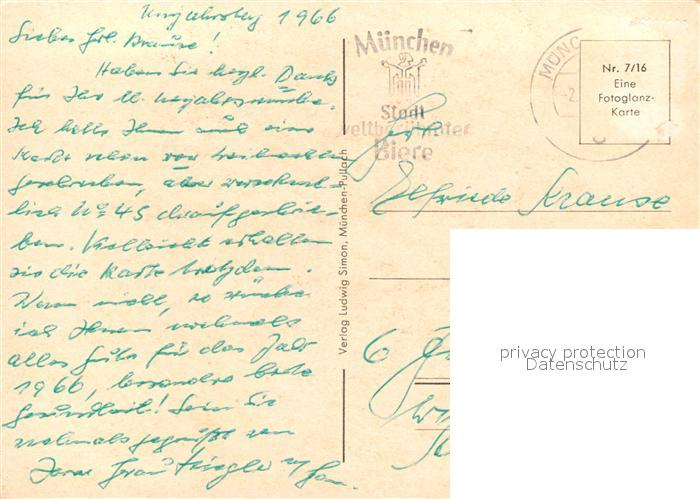 Neujahrstag 1966
Liebes Frl. Krause!
Haben Sie herzl. Dank
für Ihre lb. Neujahrswünsche.
Ich hatte Ihnen auch eine
Karte schon vor Weihnachten
geschrieben, aber versehent-
lich No 45 draufgeschrie-
ben. Vielleicht erhalten
sie die Karte trotzdem.
Wenn nicht, so wünsche
ich Ihnen nochmals
alles Gute für das Jahr
1966, besonders beste
Gesundheit! Seien Sie
nochmals gegrüßt von
Ihrer Frau
Verlag Ludwig Simon, München-Pullach
München
Stadt
weltberühmter
Biere
MÜNC
Nr. 7/16
Eine
Fotoglanz-
Karte
Frl.
Elfriede Krause
6
privacy protection
Datenschutz